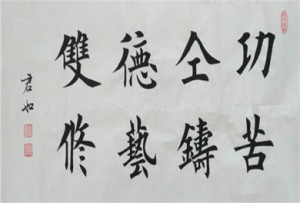 功苦
仝鑄
德藝
雙修
君如